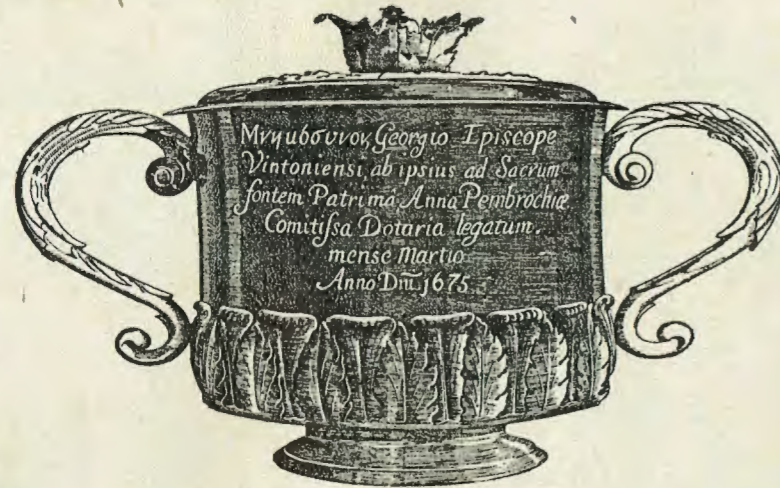 Μνημόσυνον Georgio Episcope
Vintoniensi, ab ipsius ad Sacrum
fontem Patrimâ Anna Pembrochiæ
Comitiſsa Dotaria legatum.
mense Martio
Anno Dm̄. 1675